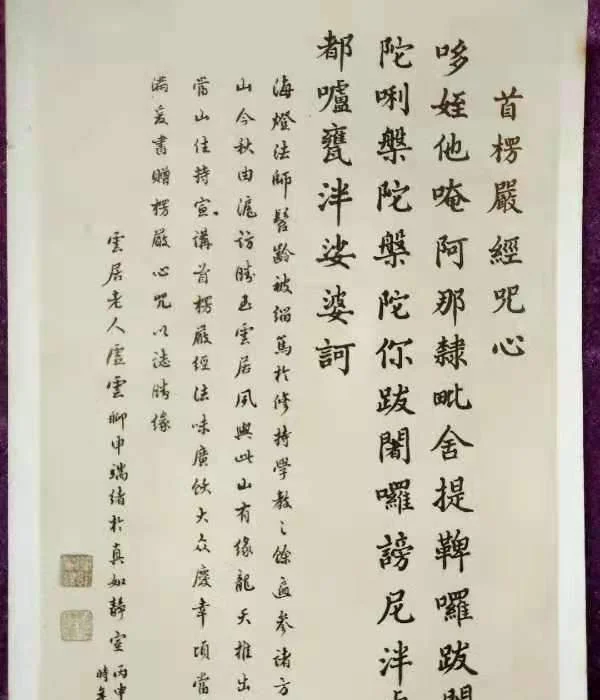 首楞嚴經咒心
哆姪他唵阿那隸毗舍提鞞囉跋闍
陀唎槃陀槃陀你跋闍囉謗尼泮
都嚧甕泮娑婆訶
海燈法師髫齡被緇篤於修持學教之餘遍參諸方
山今秋由滬訪勝至雲居夙與此山有緣龍天推出
當山住持宣講首楞嚴經法味廣飲大众慶幸項當
滿爰書贈楞嚴心咒以誌勝緣
雲居老人虛雲聊申端緒於真如靜室丙申
時年